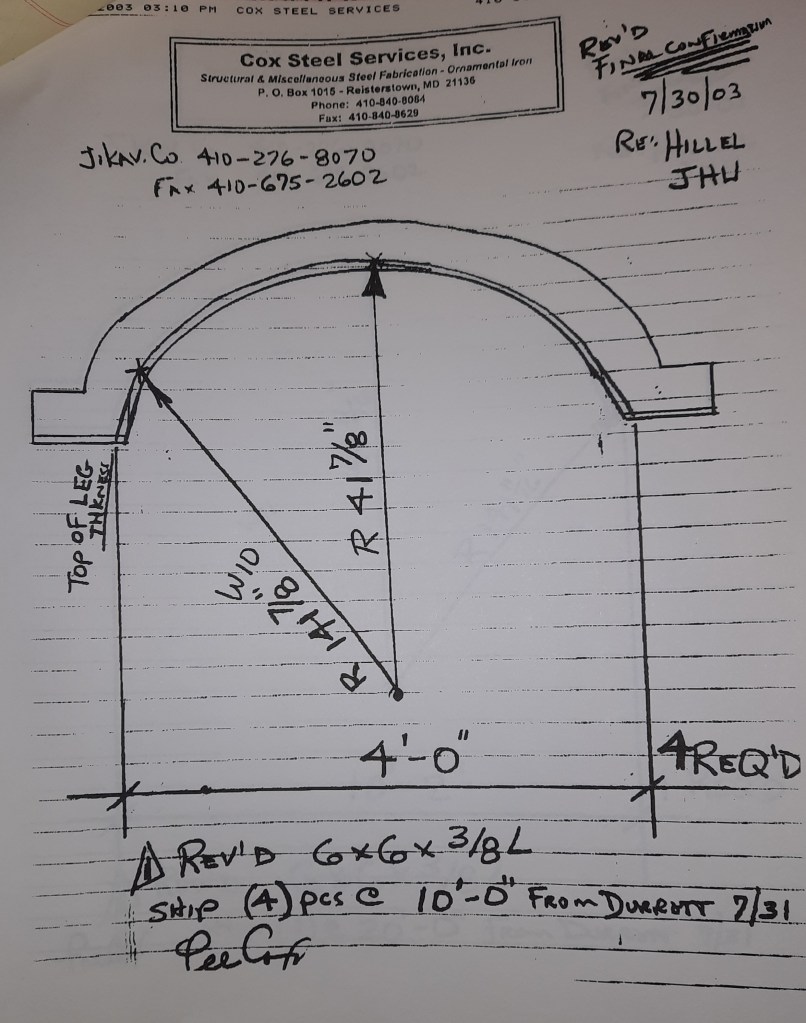 2003 03:10 PM COX STEEL SERVICES
Cox Steel Services, Inc.
Structural & Miscellaneous Steel Fabrication - Ornamental Iron
P. O. Box 1015 - Reisterstown, MD 21136
Phone: 410-840-8084
Fax: 410-840-8629
REV'D
FINAL CONFIRMATION
7/30/03
RE: HILLEL
JHU
JIKAV. Co 410-276-8070
FAX 410-675-2602
R 41 7/8"
TOP OF LEG
THKNESS
W/O
R 41 7/8"
4'-0"
4 REQ'D
REV'D 6x6x 3/8 L
SHIP (4) pcs @ 10'-0" FROM DURRETT 7/31